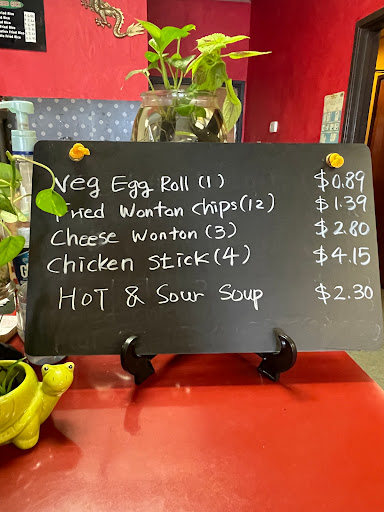 Fried Rice
Veg Egg Roll (1) $0.89
Fried Wonton Chips (12) $1.39
Cheese Wonton (3) $2.80
Chicken Stick (4) $4.15
HOT & Sour Soup $2.30